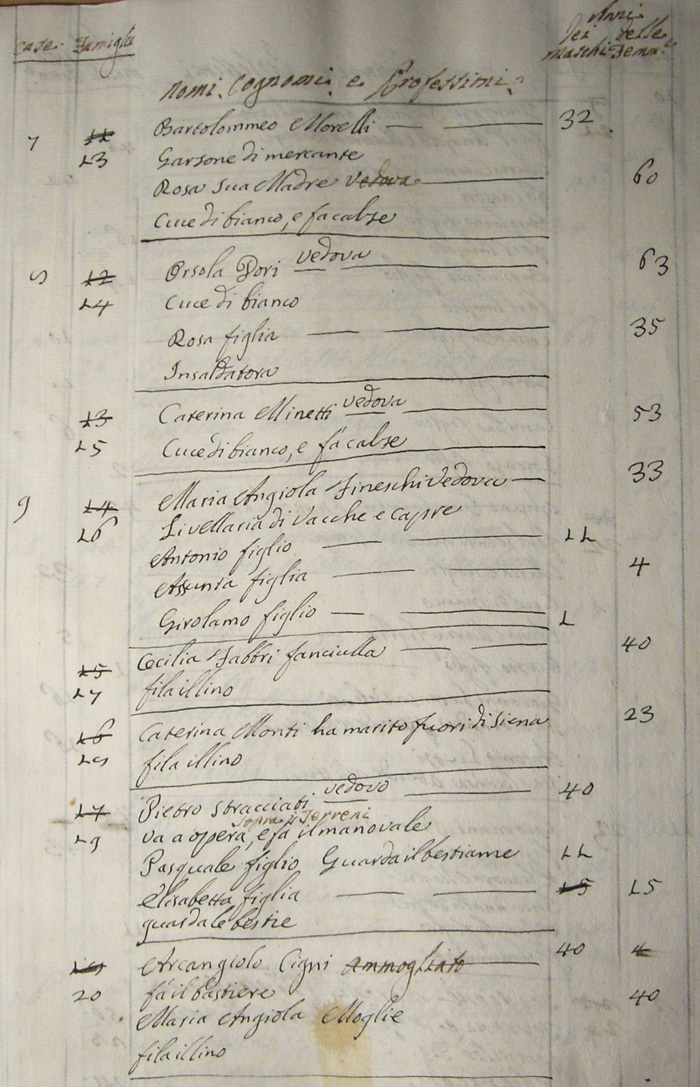 Case Famiglie Anni
dei Maschi delle Femm.e
Nomi, Cognomi e Professioni
7 11 Bartolommeo Morelli 32
13 Garzone di mercante
Rosa sua Madre vedova 60
Cuce di bianco, e fa calze
8 12 Orsola Dori vedova 63
14 Cuce di bianco
Rosa figlia 35
Insaldatora
13 Caterina Minetti vedova 53
15 Cuce di bianco, e fa calze
9 14 Maria Angiola Fineschi Vedova 33
16 Livellaria di Vacche e Capre
Antonio figlio 11
Assunta figlia 4
Girolamo figlio 1
15 Cecilia Fabbri fanciulla 40
17 fila il lino
16 Caterina Monti ha marito fuori di Siena 23
18 fila il lino
17 Pietro Stracciati vedovo 40
sopra i Terreni
19 va a opera, e fa il manovale
Pasquale figlio Guarda il bestiame 11
Elisabetta figlia 15 15
guarda le bestie
18 Arcangiolo Cigni ammogliato 40 4
20 fa il bastiere 40
Maria Angiola Moglie
fila il lino